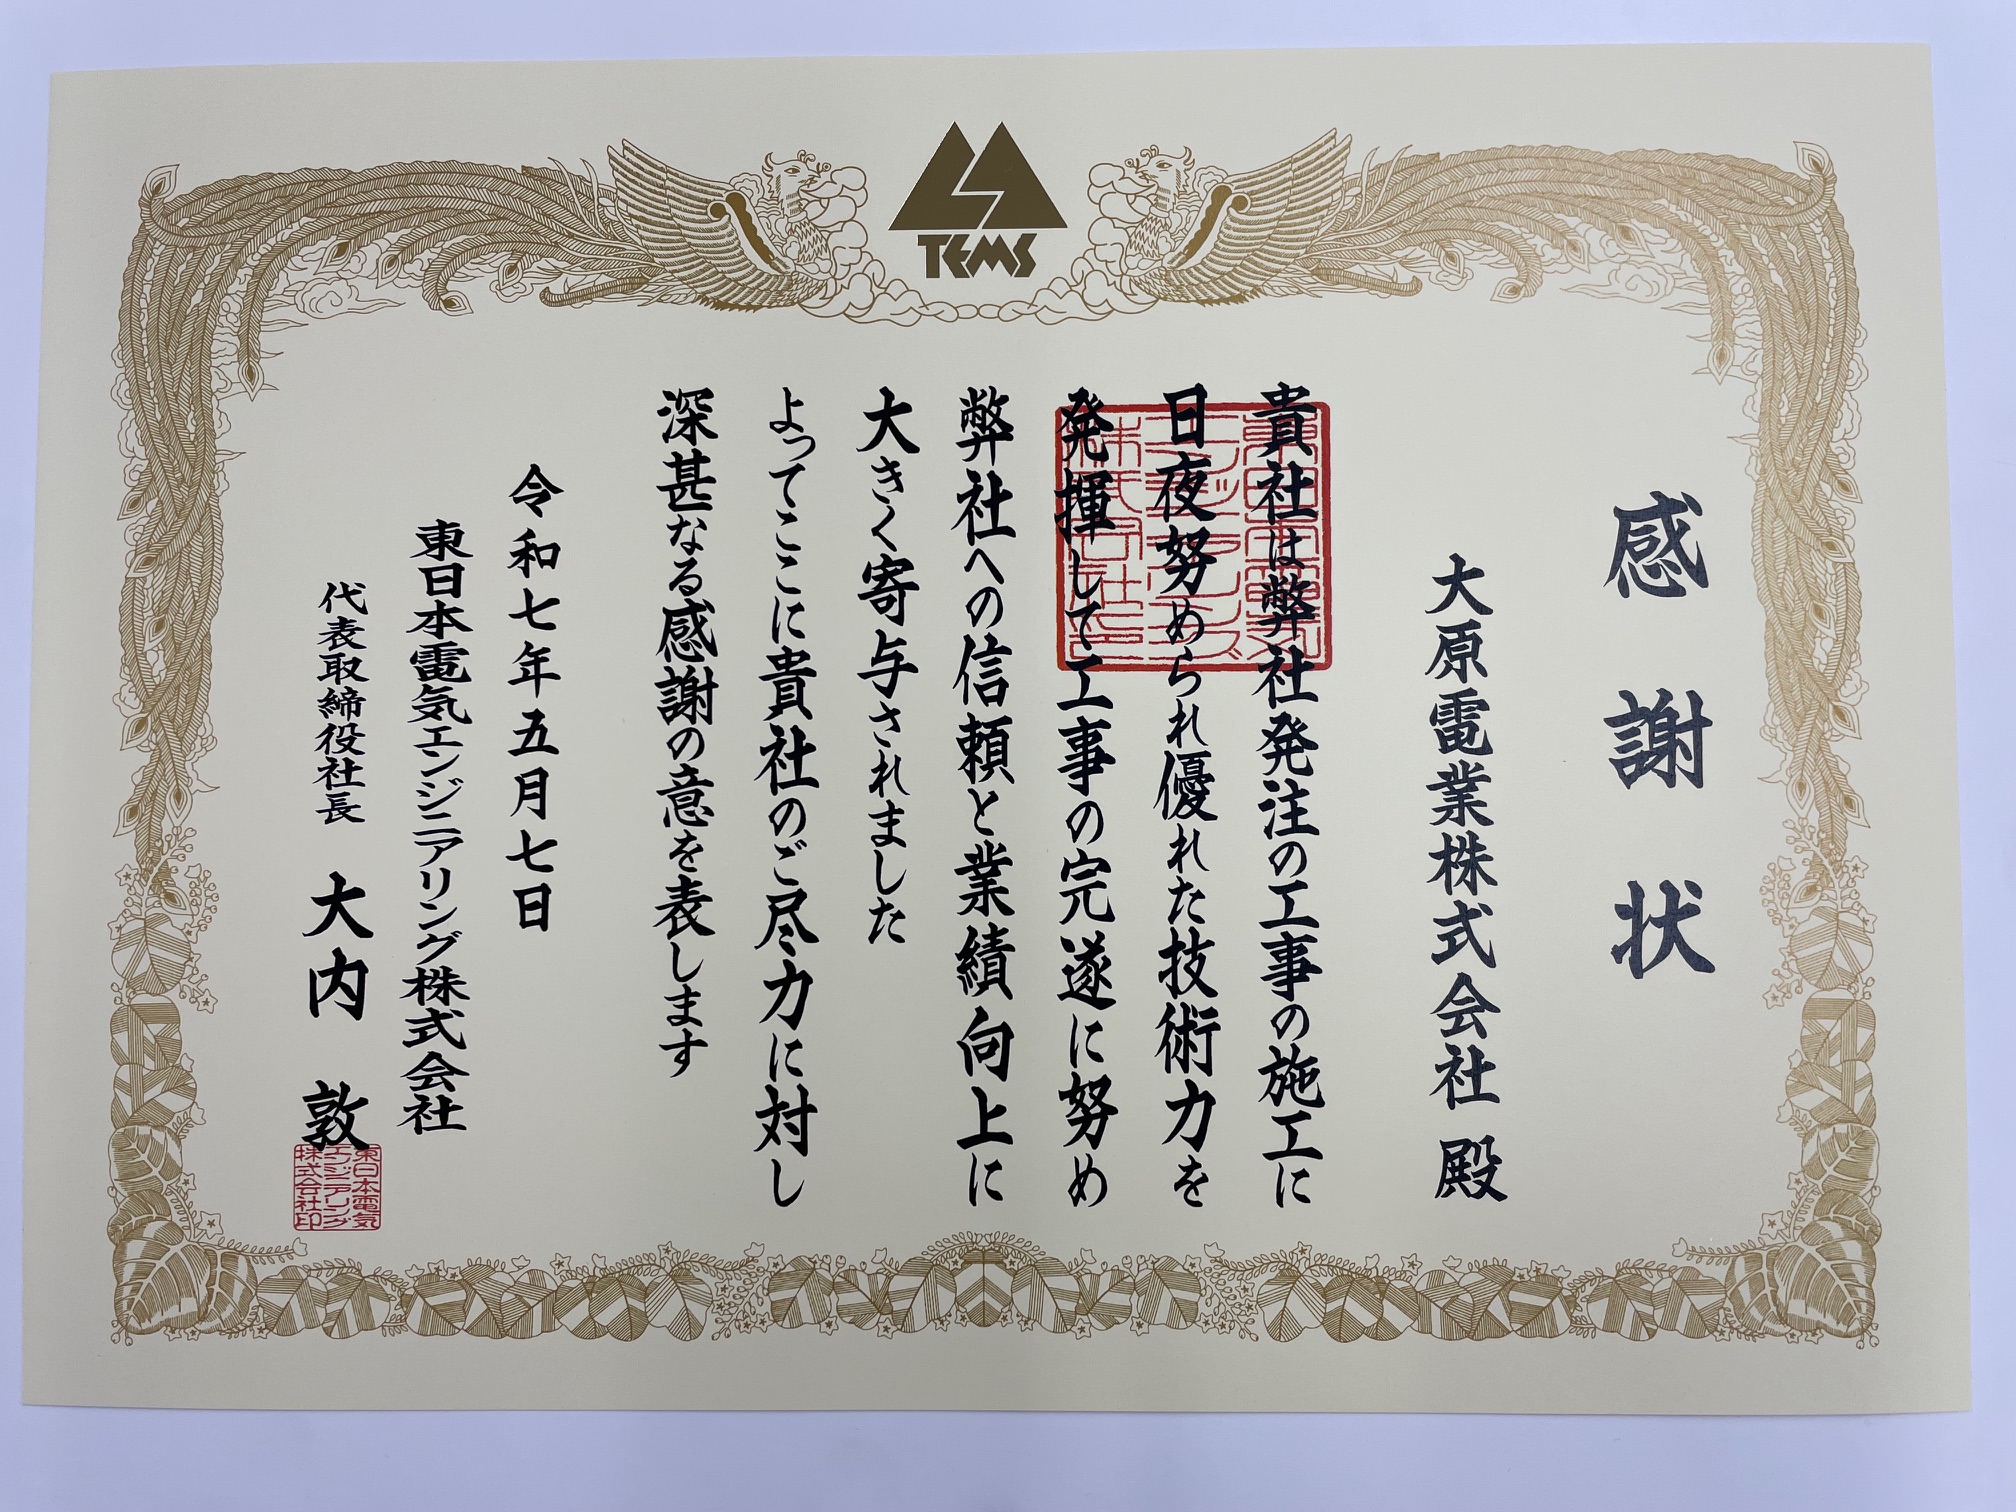 TEMS
感謝状
大原電業株式会社 殿
貴社は弊社発注の工事の施工に
日夜努められ優れた技術力を
発揮して工事の完遂に努め
弊社への信頼と業績向上に
大きく寄与されました
よってここに貴社のご尽力に対し
深甚なる感謝の意を表します
令和七年五月七日
東日本電気エンジニアリング株式会社
代表取締役社長 大内 敦
東日本電気
エンジニアリング
株式会社印